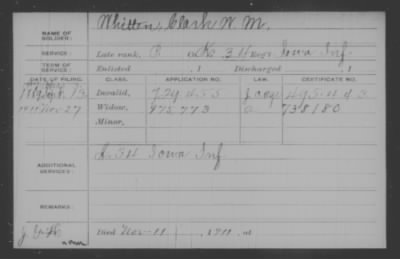 NAME OF SOLDIER: Whitten, Clark W. M.
SERVICE: Late rank, P. Co. K, 34 Reg't Iowa Inf.
TERM OF SERVICE: Enlisted , 1 Discharged , 1
DATE OF FILING. CLASS. APPLICATION NO. LAW. CERTIFICATE NO.
Invalid, 729.455
1911 Nov-27 Widow, 975.773 738180
Minor,
ADDITIONAL SERVICES: 34 Iowa Inf.
REMARKS:
Died Nov-11 , 1911, at